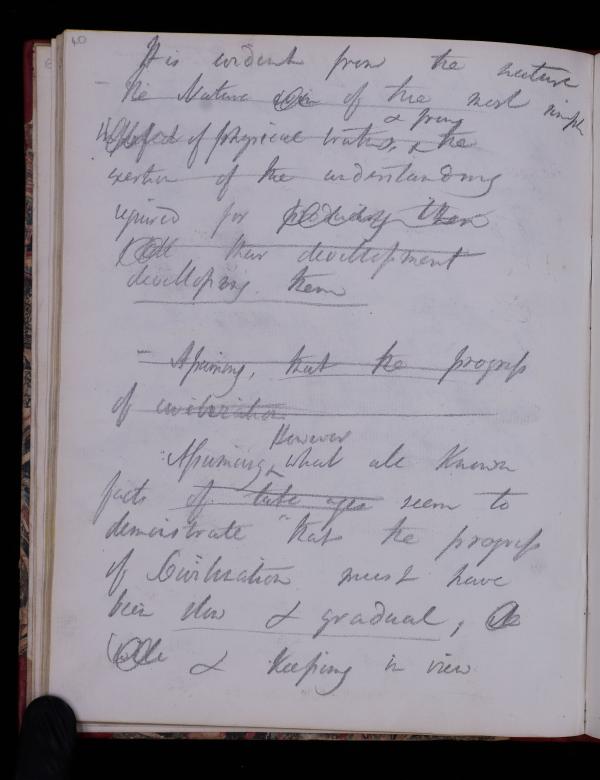 40
It is evident from the nature
– the Nature even of the most simple
& from
of physical truths, & the
exertion of the understanding
required for producing them
their development
developing them
– Assuming, that the progress
of civilization
However
Assuming, what all known
facts of late ages seem to
demonstrate "that the progress
of Civilization must have
been slow & gradual;
& keeping in view